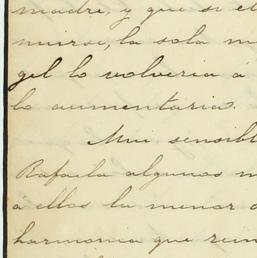 madre, y que si el
mirse, la sola m
gel lo volveria á
lo aumentaria.
Mui sensibl
Rafaela algunos m
á ellos la menor d
harmonia que rein